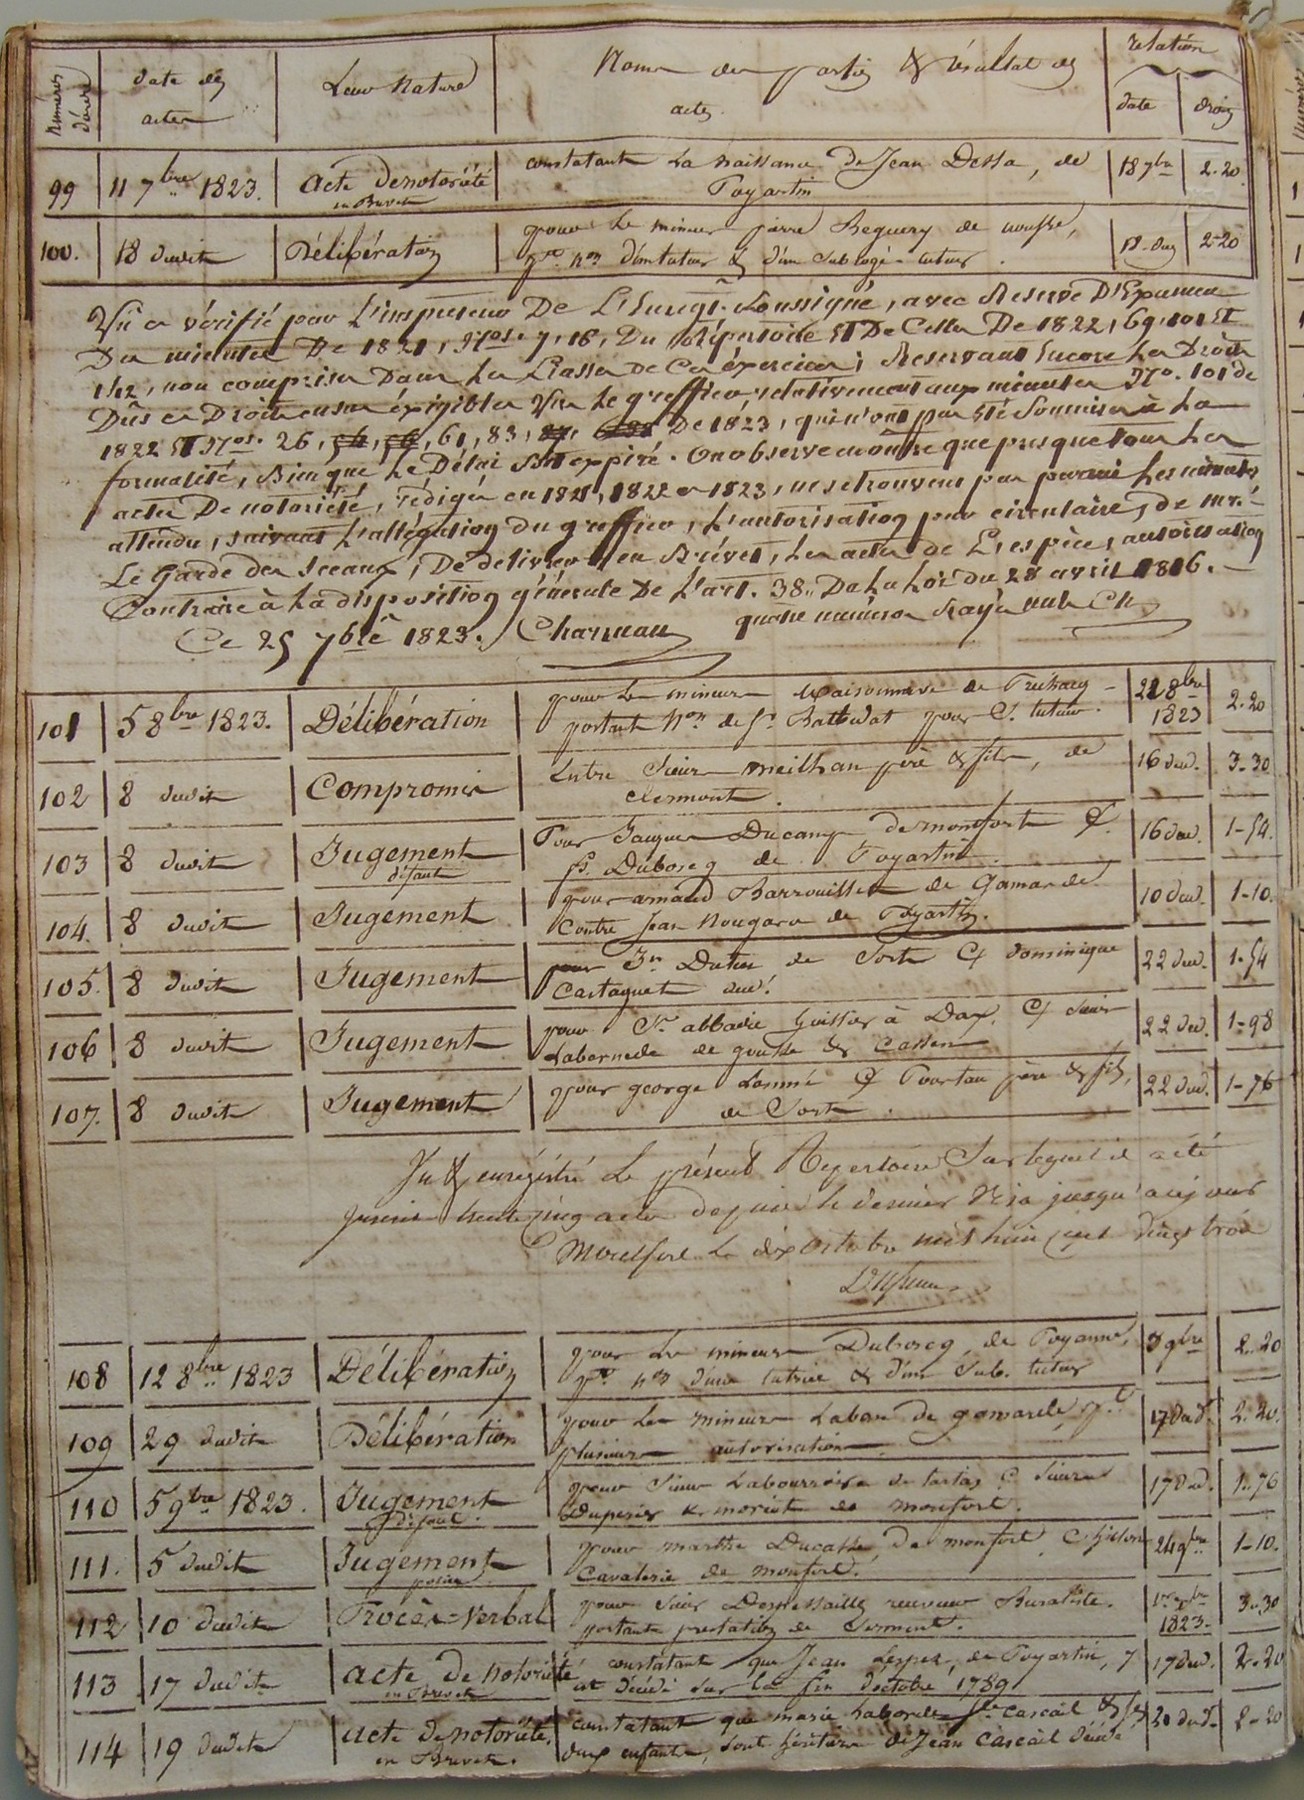 Numéros d'ordre | date des actes | Leur Nature | Noms des parties & résultat des actes | relation date | droits
99 | 11 7bre 1823. | acte de notoriété en Brevet | constatant La Naissance de Jean Dessa, de
Poyartin | 18 7bre | 2-20
100. | 18 dudit | Délibération | pour Le mineur pierre Beguery de
pt non d'un tuteur & d'un subrogé-tuteur. | 2-20
Vu et vérifié par L'inspecteur De L'Enregt. Soussigné, avec Reserve D'Examen
Des minutes De 1821, Nos. 7, 18, Du Répertoire Et De Celles De 1822, 69, 101 Et
112, non comprises Dans Les Liasses De Ces exercices; Reservant Encore Les Droits
Dûs et Droits en sus éxigibles Vers Le greffier, relativement aux minutes No. 101 de
1822 Et Nos. 26, 54, 56, 61, 83, 87, De 1823, qui n'ont pas Eté Soumises à La
formalité, Bien que Le Délai Soit expiré. On observe en outre que presque tous Les
actes De notoriété, rédigés en 1821, 1822 et 1823, ne se trouvent pas parmi Les minutes
attendu, suivant L'allégation du greffier, L'autorisation par circulaire, de Mr.
Le Garde des Sceaux, De délivrer en Brévet, Les actes de L'espèce, autorisation
Contraire à La disposition générale De L'art. 38.. De La Loi du 28 avril 1816.
Ce 25 7bre 1823. Charruau quatre numéros Rayés nuls Ch
101 | 5 8bre 1823. | Délibération | pour Les mineurs Maisonnave de
portant Non de Sr. Battudat pour S. tuteur. | 22 8bre 1823 | 2-20
102 | 8 dudit | Compromis | Entre Sieurs Meilhan père & fils, de
clermont. | 16 dud. | 3-30
103 | 8 dudit | Jugement défaut | Pour Jacques Ducamp de monfort C.
P. Duboscq de Poyartin. | 16 dud. | 1-54.
104. | 8 dudit | Jugement | pour arnaud Barrouillet de Gamarde
Contre Jean Nougaro de Poyartin. | 10 dud. | 1-10.
105. | 8 dudit | Jugement | pour Jn Dutin de Sort C. dominique
Castagnet dud. | 22 dud. | 1-54
106 | 8 dudit | Jugement | pour Sr. abbadie huissier à Dax. C. Sieur
Labernede de goutte & Cassen | 22 dud. | 1-98
107. | 8 dudit | Jugement | pour george Lamné C. Pourtau père & fils,
de Sort. | 22 dud. | 1-76
Vu & enrégistré Le présent Repertoire Sur lequel il a été
inscrit trente cinq actes depuis le dernier Visa jusqu'à ce jour
Montfort Le dix octobre mil huit cent vingt trois
108 | 12 8bre 1823 | Délibération | pour Les mineurs Duboscq, de Poyanne,
pt. non d'une tutrice & d'un Sub. tuteur | 3 9bre | 2-20
109 | 29 dudit | Délibération | pour Les mineurs Laban de gamarde, pt.
plusieurs autorisation | 17 dud. | 2-20.
110 | 5 9bre 1823. | Jugement défaut. | pour Sieur Labourroire de tartas C. Sieurs
Duperier & moriet de Monfort. | 17 dud. | 1-76
111. | 5 dudit | Jugement police | pour marthe Ducasse, de monfort, C.
Cavalerie de monfort. | 24 9bre | 1-10.
112 | 10 dudit | Procès-Verbal | pour Sieur receveur Buraliste.
portant prestation de Serment. | 1er Xbre 1823. | 3-30
113 | 17 dudit | acte de Notoriété en Brevet | constatant que Jean Lespes, de Poyartin,
est décédé Sur La fin d'octobre 1789 | 17 dud. | 2-20
114 | 19 dudit | acte de notoriété, en Brevet. | constatant que marie Laborde Ve. Cascail & ses
deux enfants, sont héritiers de Jean Cascail décédé | 20 dud. | 2-20